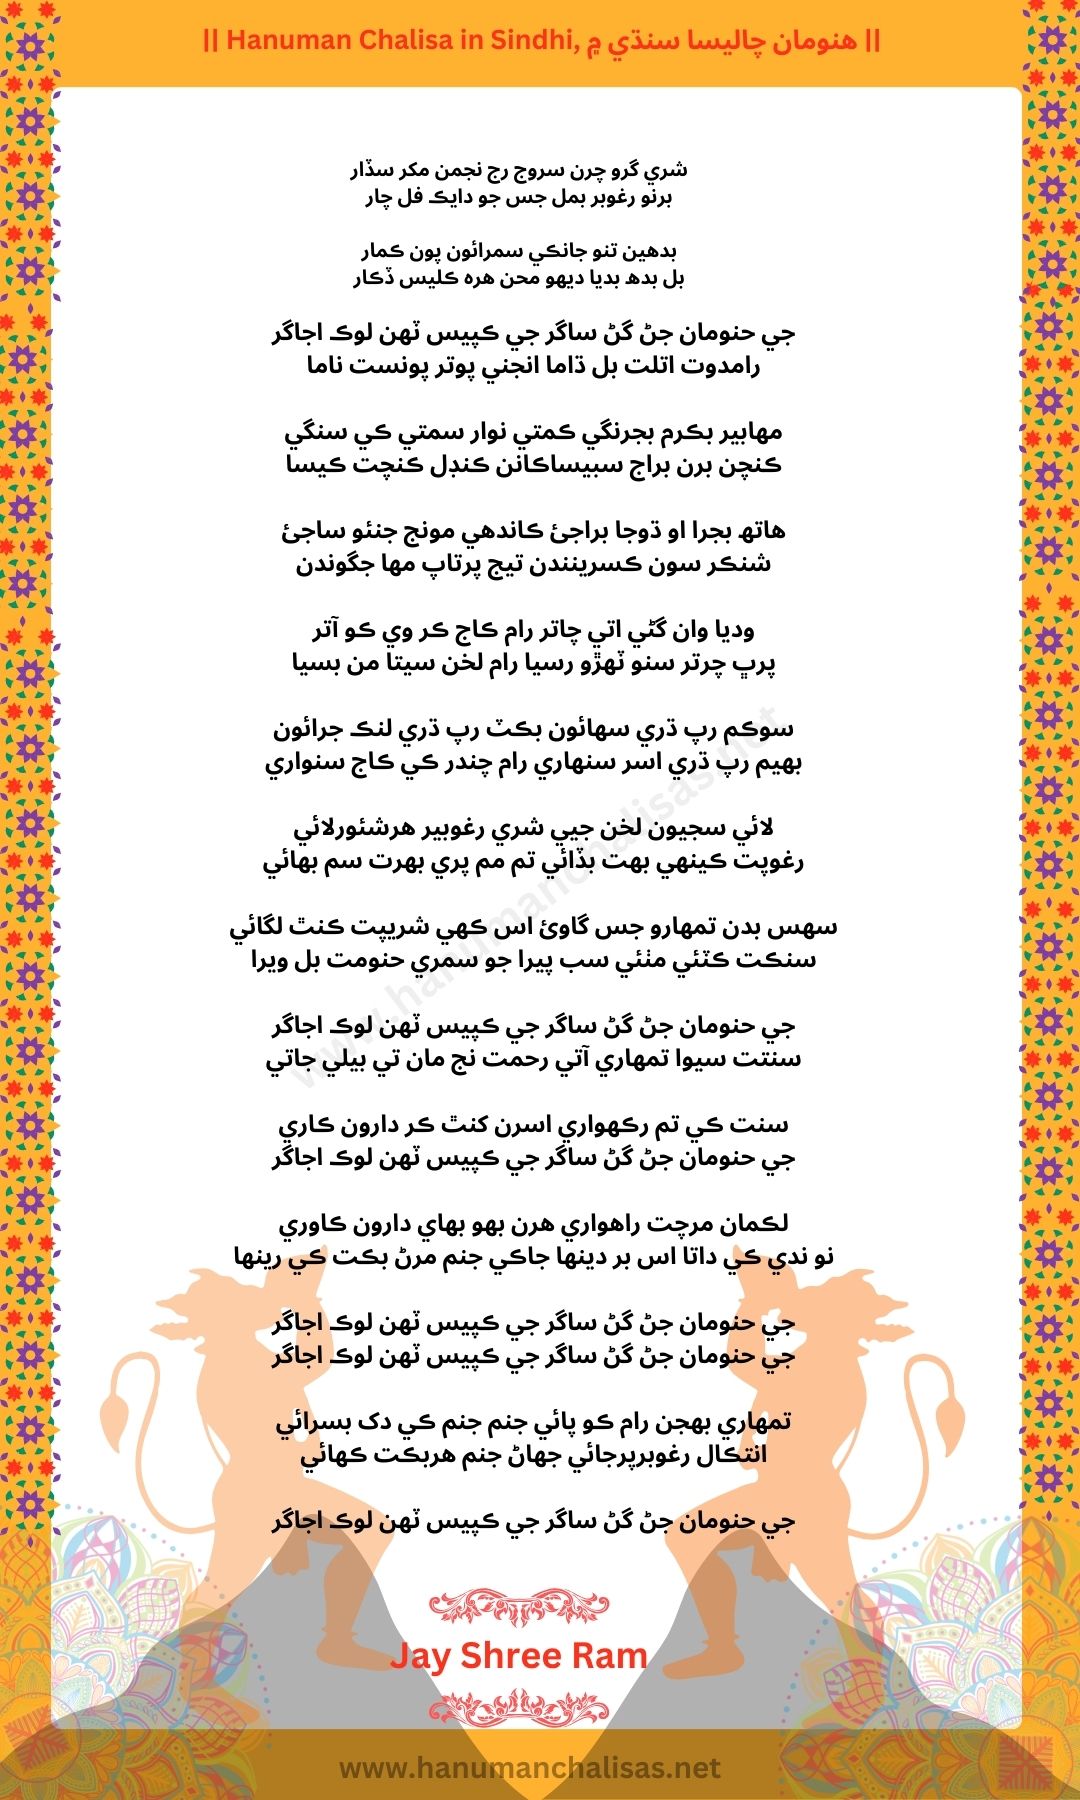 || Hanuman Chalisa in Sindhi, هنومان چاليسا سنڌي ۾ ||
شري گرو چرن سروج رج نجمن مکر سڌار
برنو رغوبر بمل جس جو دايڪ فل چار
بدهين تنو جانڪي سمرائون پون ڪمار
بل بدھ بديا ديهو محن هره ڪليس ڏڪار
جي حنومان جڻ گڻ ساگر جي ڪپيس ٽهن لوڪ اجاگر
رامدوت اتلت بل ڌاما انجني پوتر پونست ناما
مهابير بڪرم بجرنگي ڪمتي نوار سمتي ڪي سنگي
ڪنچن برن براج سبيساڪانن ڪنڊل ڪنچت ڪيسا
هاتھ بجرا او ڌوجا براجئ ڪاندهي مونج جنئو ساجئ
شنڪر سون ڪسرينندن تيج پرتاپ مها جگوندن
وديا وان گڻي اتي چاتر رام ڪاج ڪر وي ڪو آتر
پرپ چرتر سنو ٽهڙو رسيا رام لخن سيتا من بسيا
سوڪم رپ ڌري سهائون بڪٽ رپ ڌري لنڪ جرائون
بهيم رپ ڌري اسر سنهاري رام چندر ڪي ڪاج سنواري
لائي سجيون لخن جيي شري رغوبير هرشئورلائي
رغوپت ڪينهي بهت بڏائي تم مم پري بهرت سم بهائي
سهس بدن تمهارو جس گاوئ اس ڪهي شريپت ڪنٿ لگائي
سنڪت ڪٽئي مٺئي سب پيرا جو سمري حنومت بل ويرا
جي حنومان جڻ گڻ ساگر جي ڪپيس ٽهن لوڪ اجاگر
سنتت سيوا تمهاري آتي رحمت نج مان تي بيلي جاتي
سنت ڪي تم رکهواري اسرن کنٿ ڪر دارون ڪاري
جي حنومان جڻ گڻ ساگر جي ڪپيس ٽهن لوڪ اجاگر
لڪمان مرچت راهواري هرن بهو بهاي دارون ڪاوري
نو ندي ڪي داتا اس بر دينها جاڪي جنم مرڻ بڪت ڪي رينها
جي حنومان جڻ گڻ ساگر جي ڪپيس ٽهن لوڪ اجاگر
جي حنومان جڻ گڻ ساگر جي ڪپيس ٽهن لوڪ اجاگر
تمهاري بهجن رام ڪو پائي جنم جنم ڪي دک بسرائي
انتڪال رغوبرپرجائي جهاڻ جنم هربڪت ڪهائي
جي حنومان جڻ گڻ ساگر جي ڪپيس ٽهن لوڪ اجاگر
www.hanumanchalisas.net
Jay Shree Ram
www.hanumanchalisas.net